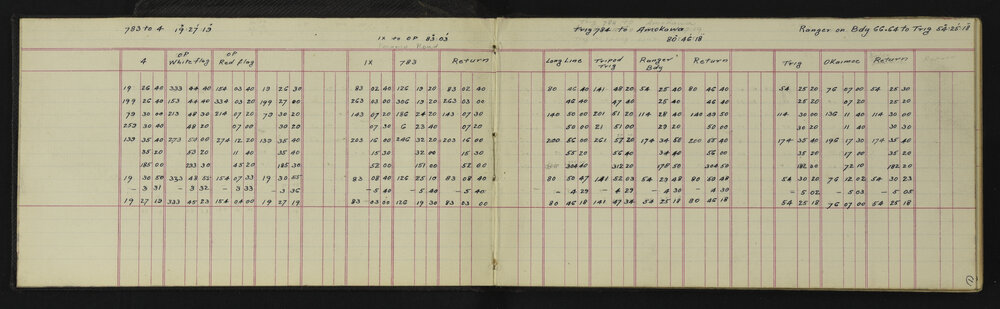 783 to 4 19·27·19
IX to OP 83·03
Trig 784 to Amokawa
80·46·18
Ranger on Bdy 66·64 to Trig 54·25·18
4 OP White flag OP Red flag IX 783 Return Long Line Tripod Trig Ranger Bdy Return Trig Okaimoe Return
19 26 40 333 44 40 154 03 40 19 26 30 83 02 40 126 19 20 83 02 40 80 46 40 141 48 20 54 25 40 80 46 40 54 25 20 76 07 00 54 25 30
199 26 40 153 44 40 334 03 20 199 27 00 263 03 00 306 19 20 263 03 00 46 40 47 40 25 40 46 40 25 20 07 20 25 20
79 30 00 213 48 30 214 07 20 79 30 20 143 07 20 186 24 20 143 07 30 140 50 00 201 51 20 114 28 40 140 49 50 114 30 00 136 11 40 114 30 00
259 30 40 48 20 07 00 30 20 07 30 6 23 40 07 20 50 00 21 51 00 29 20 50 00 30 20 11 40 30 30
139 35 40 273 53 00 274 12 20 139 35 40 203 16 00 246 32 20 203 16 00 200 56 00 261 57 20 174 34 50 200 55 40 174 35 40 196 17 30 174 35 40
35 20 53 20 11 40 35 40 15 30 32 00 15 30 55 20 56 40 34 40 56 00 35 30 17 00 35 20
185 00 233 30 45 20 185 30 52 00 151 00 52 00 304 40 312 20 175 30 304 50 182 00 72 10 182 20
19 30 50 333 48 52 154 07 33 19 30 55 83 08 40 126 25 10 83 08 40 80 50 47 141 52 03 54 29 48 80 50 48 54 30 20 76 12 02 54 30 23
- 3 31 - 3 32 - 3 33 - 3 36 - 5 40 - 5 40 - 5 40 - 4 29 - 4 29 - 4 30 - 4 30 - 5 02 - 5 03 - 5 05
19 27 19 333 45 23 154 04 00 19 27 19 83 03 00 126 19 30 83 03 00 80 46 18 141 47 34 54 25 18 80 46 18 54 25 18 76 07 00 54 25 18